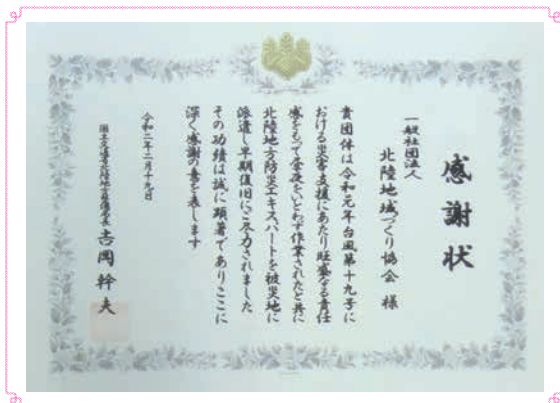 感謝状
一般社団法人
北陸地域づくり協会 様
貴団体は令和元年台風第十九号に
おける災害支援にあたり旺盛なる責任
感をもって昼夜をいとわず作業されたと共に
北陸地方防災エキスパートを被災地に
派遣し早期復旧にご尽力されました
その功績は誠に顕著でありここに
深く感謝の意を表します
令和二年二月十九日
国土交通省北陸地方整備局長 吉岡幹夫